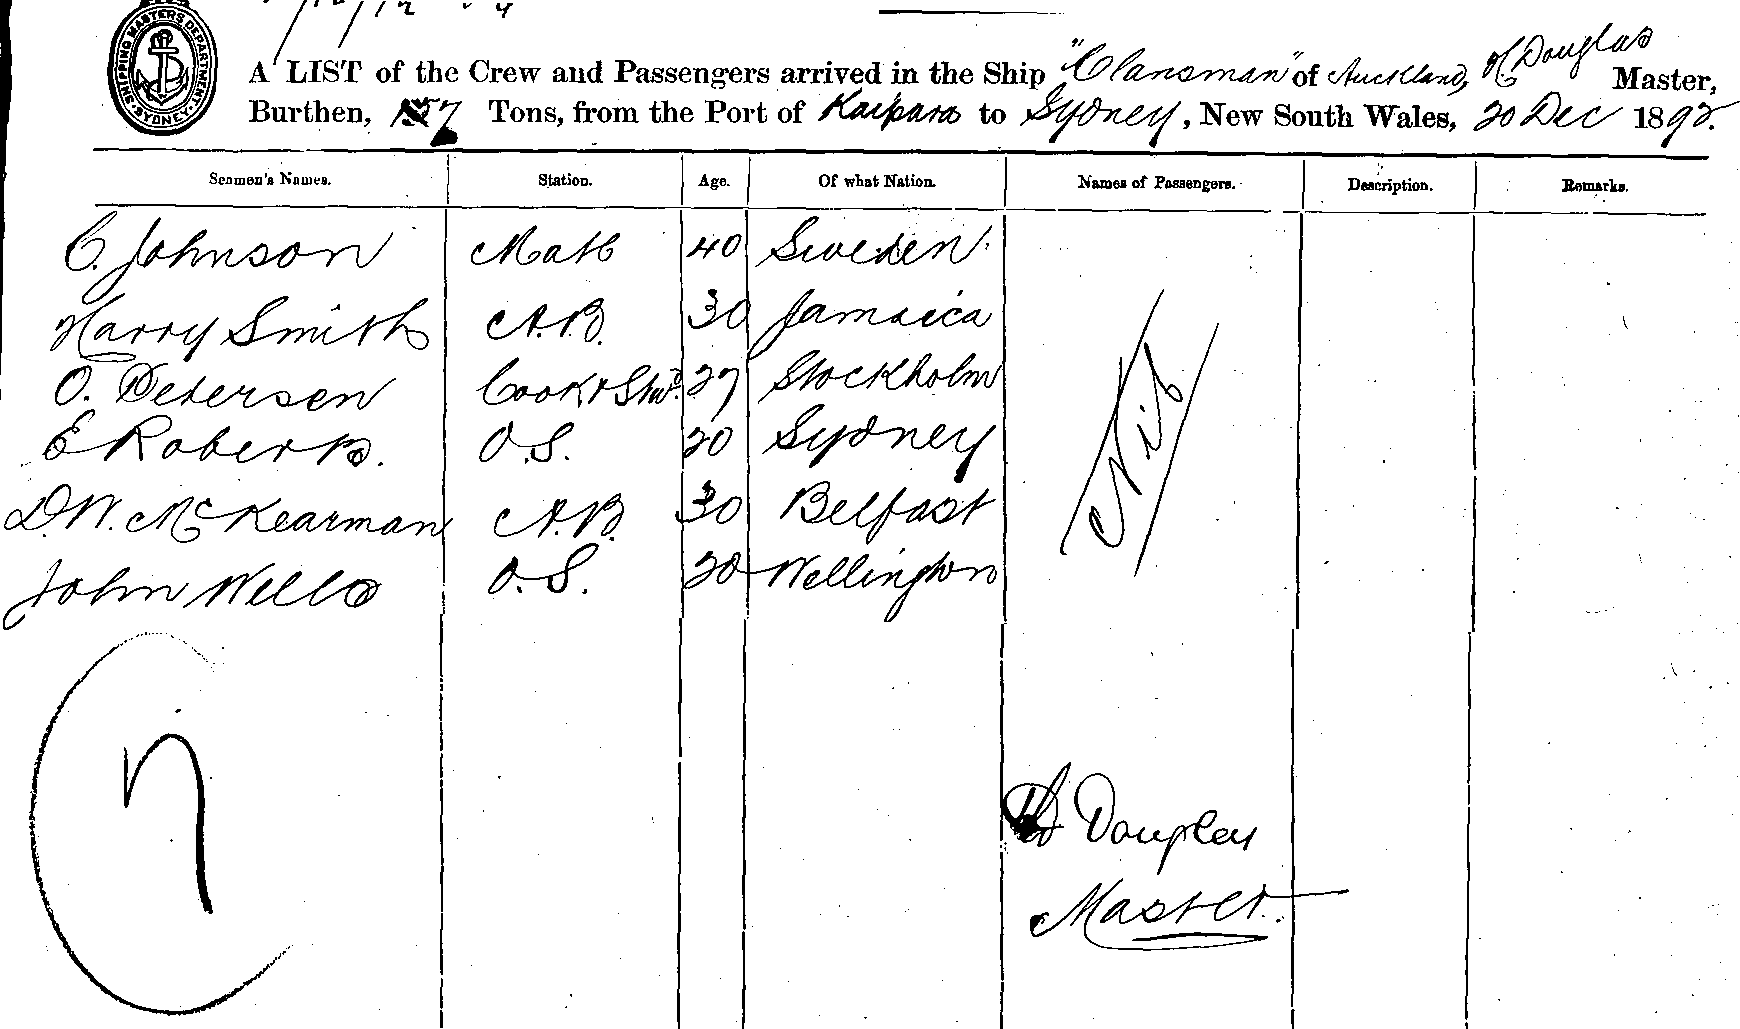 SHIPPING MASTERS DEPARTMENT. SYDNEY.
A LIST of the Crew and Passengers arrived in the Ship "Clansman" of Auckland, H Douglas Master,
Burthen, Tons, from the Port of Kaipara to Sydney, New South Wales, 20 Dec 1892.
Seamen's Names. Station. Age. Of what Nation. Names of Passengers. Description. Remarks.
C. Johnson Mate 40 Sweden
Harry Smith A.B. 30 Jamaica
O. Petersen Cook & Stwd. 27 Stockholm
E Roberts. O.S. 20 Sydney
D.W. McKearman A.B. 30 Belfast
John Wells O.S. 20 Wellington
Nil
7
Douglas
Master.